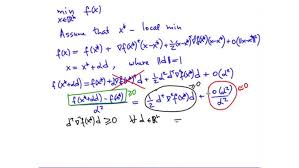 min f(x)
x∈ℝⁿ
Assume that x* - local min
f(x) = f(x*) + ∇f(x*)(x-x*) + ½(x-x*)ᵀ∇²f(x*)(x-x*) + o(‖x-x*‖²)
x = x*+αd, where ‖d‖=1
f(x*+αd) = f(x*) + α∇f(x*)ᵀd + ½α²dᵀ∇²f(x*)d + o(α²)
f(x*+αd) - f(x*) / α² ≥0 = ½ dᵀ∇²f(x*)d + o(α²)/α² →0
dᵀ∇²f(x*)d ≥ 0 ∀ d∈ℝⁿ =